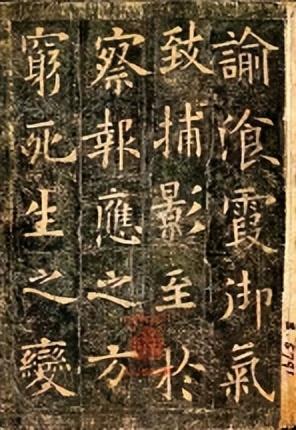 諭湌霞御氣
致捕影至於
察報應之方
窮死生之變
5791